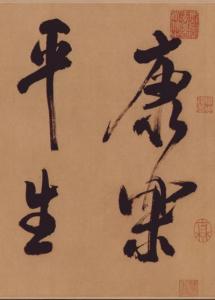 康樂
平生